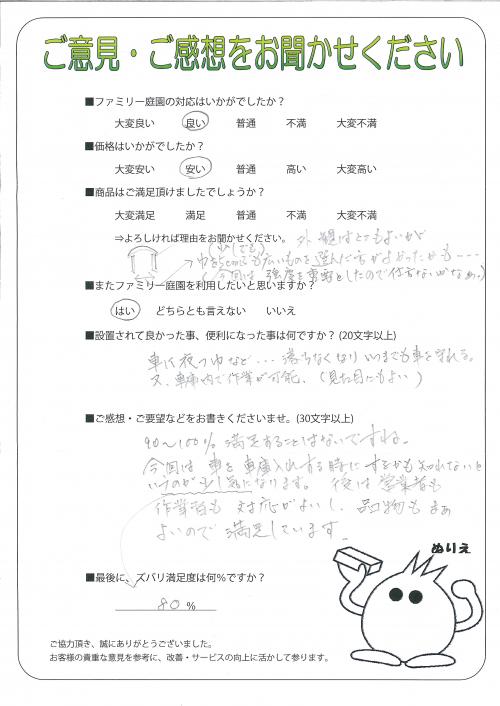 ご意見・ご感想をお聞かせください
■ファミリー庭園の対応はいかがでしたか？
大変良い 良い 普通 不満 大変不満
■価格はいかがでしたか？
大変安い 安い 普通 高い 大変高い
■商品はご満足頂けましたでしょうか？
大変満足 満足 普通 不満 大変不満
⇒よろしければ理由をお聞かせください。 外観はとてもよいが
巾を5cmでも広いものを選んだ方がよかったかも・・・・
(今回は強度を重要としたので仕方ないかなぁ。)
■またファミリー庭園を利用したいと思いますか？
はい どちらとも言えない いいえ
■設置されて良かった事、便利になった事は何ですか？(20文字以上)
車に夜つゆなど・・・落ちなくなりいつまでも車を守れる。
又、車庫内で作業が可能、(見た目にもよい)
■ご感想・ご要望などをお書きくださいませ。(30文字以上)
90〜100％満足することはないですね。
今回は車を車庫入れする時にするかも知れないと
いうのが少し気になります。後は営業者も
作業者も対応がよいし、品物もまあ
よいので満足しています。
ぬりえ
■最後に、ズバリ満足度は何％ですか？
80 %
ご協力頂き、誠にありがとうございました。
お客様の貴重な意見を参考に、改善・サービスの向上に活かして参ります。